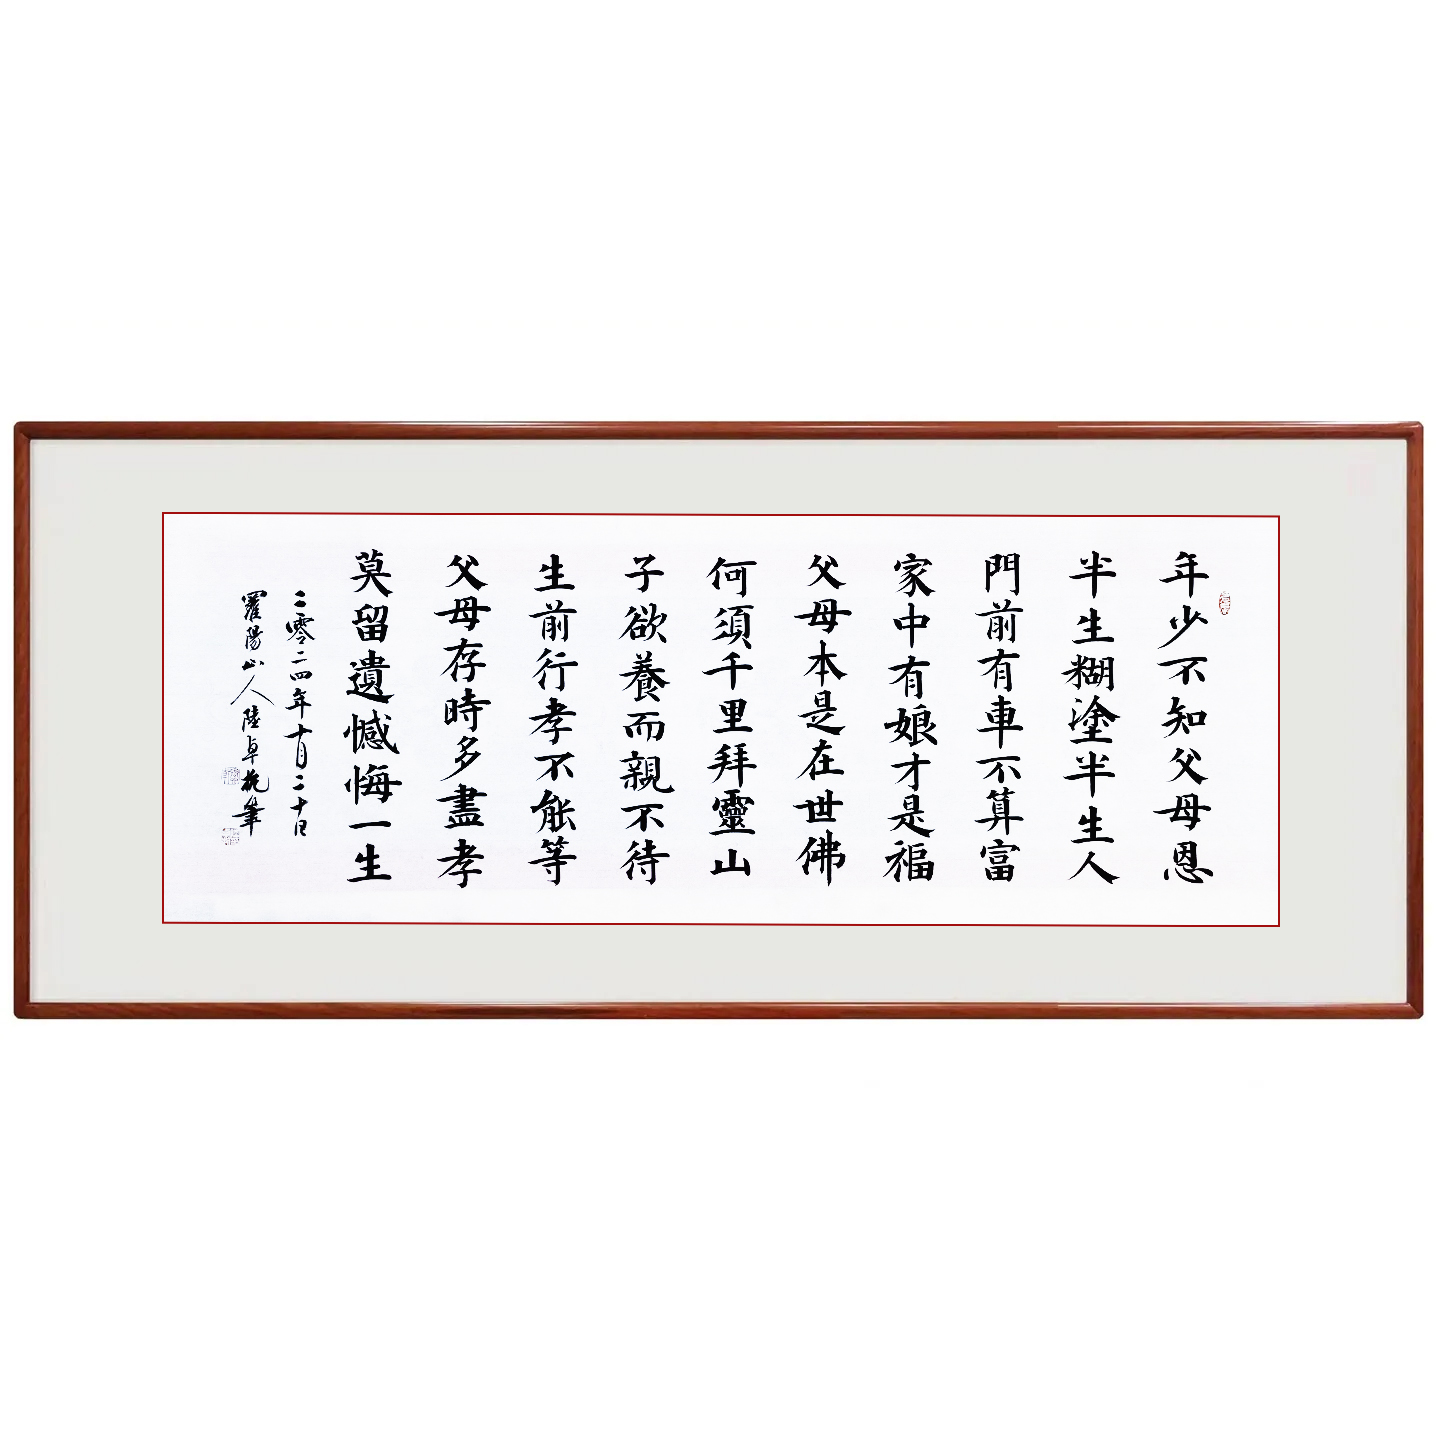 年少不知父母恩
半生糊塗半生人
門前有車不算富
家中有娘才是福
父母本是在世佛
何須千里拜靈山
子欲養而親不待
生前行孝不能等
父母存時多盡孝
莫留遺憾悔一生
二零二四年十月二十日
羅陽山人陸卓挽筆